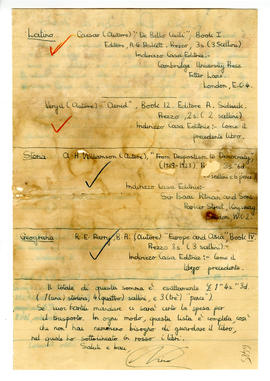 Latino. Caesar (Autore) "De Bello Civili", Book I
Editore, A. G. Peskett. Prezzo, 3s. (3 scellini)
Indirizzo Casa Editrice:-
Cambridge University Press
Fetter Lane.
London, E.C.4.
Vergil (Autore) "Aeneid", Book 12. Editore A. Sidgwick.
Prezzo, 2s. (2 scellini)
Indirizzo Casa Editrice:- Come il
precedente libro.
Storia A. H. Williamson (Autore), "From Despotism to Democracy,
scellini e 6 pence
Indirizzo Casa Editrice:-
Sir Isaac Pitman and Sons
Parker Street, Kingsway
London W.C.2.
Geografia (Autore) Europe and Asia" Book IV
Prezzo 3s (3 scellini)
Indirizzo Casa Editrice:- Come il
libro precedente.
Il totale di questa somma è esattamente £1" 4s" 3d.
(1 (una) sterlina, 4 (quattro) scellini, e 3 (tre) pence)
Se vuoi farti mandare ci sarà certo la spesa per
il trasporto. In ogni modo, questa lista è completa così
che non hai nemmeno bisogno di guardare il libro,
nel quale ho sottolineato in rosso i libri.
Saluti e baci